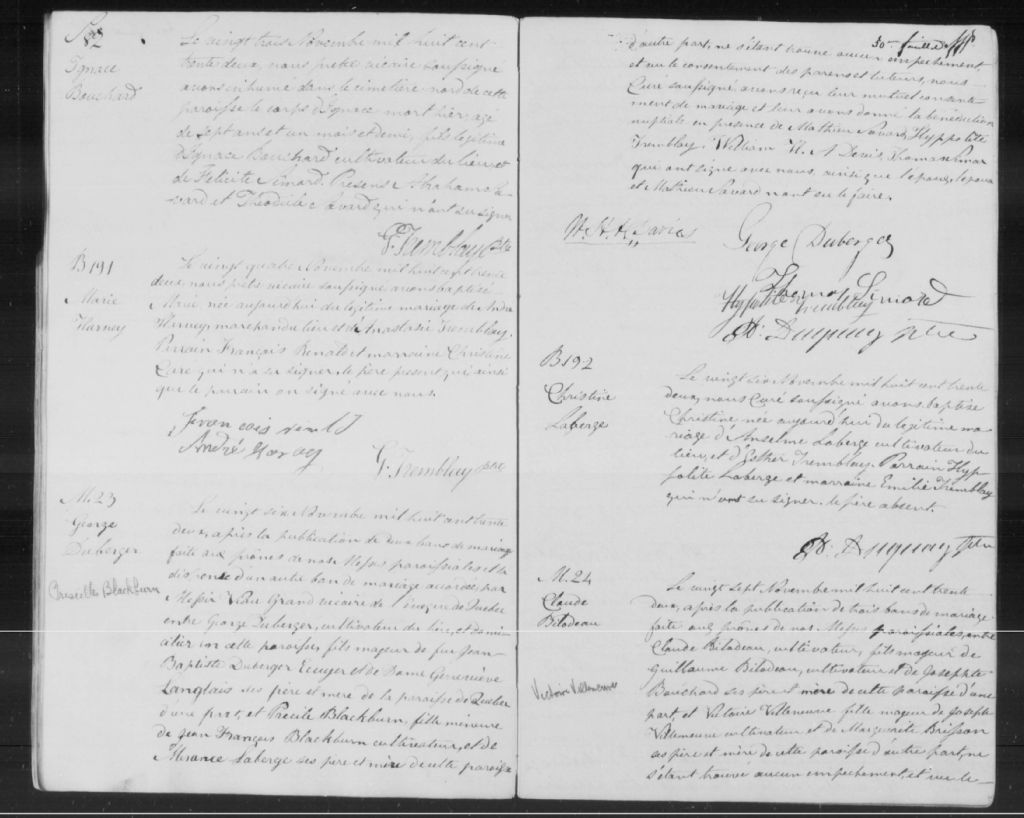 Ignace
Bouchard
Le vingt trois Novembre mil huit cent
trente deux, nous pretre vicaire soussigné
avons inhumé dans le cimetiere nord de cette
paroisse le corps d'Ignace mort hier, age
de sept ans et un mois et demi, fils légitime
d'Ignace Bouchard cultivateur du lieu, et
de Felicite Simard. Presens Abraham Sa-
vard et Savard qui n'ont su signer
G. Tremblay Ptre
B191
Marie
Harvey
Le vingt quatre Novembre mil huit cent trente
deux, nous prêtre vicaire soussigné avons baptisé
Marie née aujourd'hui du légitime mariage de André
Harvey marchand du lieu et de Anastasie Tremblay.
Parrain François Renald et marraine Christine
qui n'a su signer, le père present qui ainsi
que le parrain on signé avec nous.
François
André Harvey
G. Tremblay ptre
M. 23
George
Duberger
Priscille Blackburn
Le vingt six Novembre mil huit cent trente
deux, après la publication de deux bans de mariage
faite aux prônes de nos Messes paroissiales et la
dispense d'un autre ban de mariage accordée par
Messire Viau Grand vicaire de l'évêque de Quebec
entre George Duberger, cultivateur du lieu, et domi-
cilier en cette paroisse, fils majeur de feu Jean
Baptiste Duberger Ecuyer et de Dame Geneviève
Langlais ses père et mère de la paroisse de Quebec
d'une part, et Blackburn, fille mineure
de Jean François Blackburn cultivateur, et de
Laberge ses pere et mère de cette paroisse
30 feuillet
d'autre part, ne s'étant trouvé aucun empechement,
et vu le consentement des parens et tuteurs, nous
Curé soussigné avons reçu leur mutuel consente-
ment de mariage et leur avons donné la bénédiction
nuptiale en presence de Mathieu Savard, Hyppolite
Tremblay, William H. A Davis, Thomas Simard
qui ont signé avec nous, ainsi que l'époux, l'épouse
et Mathieu Savard n'ont su le faire.
W. H. A. Davis
George Duberger
Thomas Simard
Hyppolite Tremblay
Duguay ptre
B192
Christine
Laberge
Le vingt six Novembre mil huit cent trente
deux, nous Curé soussigné avons baptisé
Christine née aujourd'hui du légitime ma-
riage d'Anselme Laberge cultivateur du
lieu, et d'Esther Tremblay. Parrain Hyp-
polite Laberge et marraine Emilie Tremblay
qui n'ont su signer. le père absent.
Duguay ptre
M. 24
Claude
Bilodeau
Victoire Villeneuve
Le vingt sept Novembre mil huit cent trente
deux, après la publication de trois bans de mariage
faite aux prônes de nos Messes paroissiales, entre
Claude Bilodeau, cultivateur, fils majeur de
Guillaume Bilodeau, cultivateur et de Josephte
Bouchard ses père et mère de cette paroisse d'une
part, et Victoire Villeneuve fille majeur de Joseph
Villeneuve cultivateur et de Marguerite Brisson
ses père et mère de cette paroisse d'autre part, ne
s'étant trouvé aucun empechement, et vu le